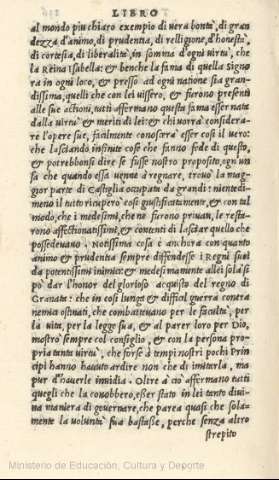 LIBRO
al mondo piu chiaro exempio di uera bontà, di gran
dezza d'animo, di prudentia, di religione, d'honestà,
di cortesia, di liberalità, in somma d'ogni uirtù, che
la Reina Isabella: & benche la fama di quella Signo
ra in ogni loco, & presso ad ogni natione sia gran-
dissima, quelli che con lei uissero, & furono presenti
alle sue attioni, tutti affermano questa fama esser nata
dalla uirtù & meriti di lei: & chi uorrà considera-
re l'opere sue, facilmente conoscerà esser cosi il uero:
che lasciando infinite cose che fanno fede di questo,
& potrebbonsi dire se fusse nostro proposito, ogn'un
sa che quando essa uenne à regnare, trouò la mag-
gior parte di Castiglia occupata da grandi: nientedi-
meno il tutto recuperò cosi giustificatamente, & con tal
modo, che i medesimi, che ne furono priuati, le resta-
rono affettionatissimi, & contenti di lasciar quello che
possedeuano. Notissima cosa è anchora con quanto
animo & prudentia sempre diffendesse i Regni suoi
da potentissimi inimici: & medesimamente à lei sola si
po dar l'honor del glorioso acquisto del regno di
Granata: che in cosi lunga & difficil guerra contra
nemici ostinati, che combatteuano per le facultà, per
la uita, per la legge sua, & al parer loro per Dio,
mostrò sempre col consiglio, & con la persona pro-
pria tanta uirtù, che forse à tempi nostri pochi Prin
cipi hanno hauuto ardire non che di imitarla, ma
pur d'hauerle inuidia. Oltre à ciò affermano tutti
quegli che la conobbero, esser stato in lei tanto diui-
na maniera di gouernare, che parea quasi che sola-
mente la uoluntà sua bastasse, perche senza altro
strepito
Ministerio de Educación, Cultura y Deporte